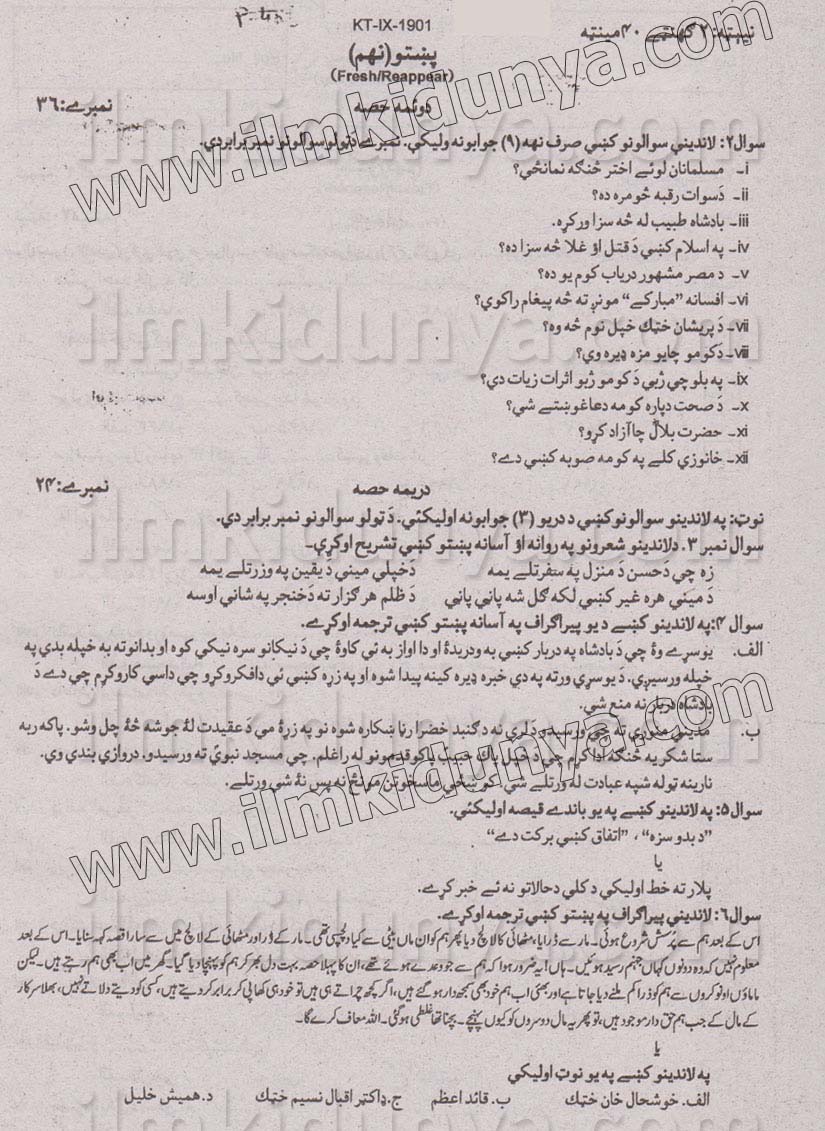 KT-IX-1901
نېټه: ۲ ګهنټے ۴۰ مينټه
پښتو (نهم)
(Fresh/Reappear)
دوئمه حصه نمبرے: ۳۶
سوال۲: لاندیني سوالونو کښي صرف نهه (۹) جوابونه وليکي. نمبرے دَ ټولو سوالونو نمبر برابر دي.
i- مسلمانان لوئے اختر څنګه نمانځي؟
ii- دَ سوات رقبه څومره ده؟
iii- بادشاه طبيب له څه سزا ورکړه.
iv- په اسلام کښي دَ قتل اؤ غلا څه سزا ده؟
v- د مصر مشهور درياب کوم يو ده؟
vi- افسانه “مبارکے” مونږ ته څه پيغام راکوي؟
vii- دَ پريشان خټك خپل نوم څه وه؟
viii- دَ کومو چايو مزه ډيره وي؟
ix- په بلوچي ژبي دَ کومو ژبو اثرات زيات دي؟
x- دَ صحت دپاره کومه دعا غوښتے شي؟
xi- حضرت بلالؓ چا آزاد کړو؟
xii- خانوزي کلے په کومه صوبه کښي دے؟
دريمه حصه نمبرے: ۲۴
نوټ: په لاندينو سوالونو کښي د دريو (۳) جوابونه اوليکئي. دَ ټولو سوالونو نمبر برابر دي.
سوال نمبر ۳. دلاندينو شعرونو په روانه اؤ آسانه پښتو کښي تشريح اوکړي.
زه چي دَ حسن دَ منزل په سفر تلے يمه دَ خپلي ميني دَ يقين په وزر تلے يمه
دَ ميني هره غير کښي لکه ګل شه پاڼي پاڼي دَ ظلم هر ګزار ته دَ خنجر په شاني اوسه
سوال ۴: په لاندينو کښے د يو پيراګراف په آسانه پښتو کښي ترجمه اوکړے.
الف. يو سړے وۀ چي دَ بادشاه په دربار کښي به ودريدۀ او دا اواز به ئي کاوۀ چي دَ نيکانو سره نيکي کوه او بدانو ته به خپله بدي په
خپله ورسيږي. دَ يو سړي ورته په دي خبره ډيره کينه پيدا شوه او په زړه کښي ئي دا فکر وکړو چي داسي کار وکړم چي دے دَ
بادشاه دربار نه منع شي.
ب. مديني منورې ته چي ورسيدو دَ لري نه دَ ګنبد خضرا رڼا ښکاره شوه نو په زړۀ مي دَ عقيدت لۀ جوشه څۀ چل وشو. پاکه ربه
ستا شکر په څنګه ادا کړم چي دَ خپل پاك حبيب پاکو قدمونو له راغلم. چي مسجد نبويؐ ته ورسيدو. دروازي بندي وي.
نارينه ټوله شپه عبادت له ورتلے شي. کو ښځي ماسخوتن مونځ نه پس نۀ شي ورتلے.
سوال ۵: په لاندينو کښے په يو باندے قيصه اوليکئي.
“د بدو سزه” ، “اتفاق کښي برکت دے”
يا
پلار ته خط اوليکي د کلي د حالاتو نه ئے خبر کړے.
سوال ۶: لانديني پيراګراف په پښتو کښي ترجمه اوکړے.
اس کے بعد ہم سے پُرسش شروع ہوئی۔ مار سے ڈرایا، مٹھائی کا لالچ دیا پھر ہم کو ان ماں بیٹی سے کیا دلچسپی تھی۔ مار کے ڈر اور مٹھائی کے لالچ میں سے سارا قصہ کہہ سنایا۔ اس کے بعد
معلوم نہیں کہ وہ دونوں کہاں جہنم رسید ہوئیں۔ ہاں! یہ ضرور ہوا کہ ہم سے جو وعدے ہوئے تھے، ان کا پہلا حصہ بہت دل بھر کر ہم کو پہنچا دیا گیا۔ گھر میں اب بھی ہم رہتے ہیں۔ لیکن
ماماؤں او نوکروں سے ہم کو ذرا کم ملنے دیا جاتا ہے اور بھئی اب ہم خود بھی سمجھ دار ہو گئے ہیں، اگر کچھ چراتے ہی ہیں تو خود ہی کھا پی کر برابر کر دیتے ہیں، کسی کو دیتے دلاتے نہیں، بھلا سرکار
کے مال کے جب ہم حق دار موجود ہیں، تو پھر یہ مال دوسروں کو کیوں پہنچے۔ بچنا تھا غلطی ہو گئی۔ اللہ معاف کرے گا۔
يا
په لاندينو کښے په يو نوټ اوليکي
الف. خوشحال خان خټك ب. قائد اعظم ج. ډاکټر اقبال نسيم خټك د. هميش خليل
www.ilmkidunya.com
www.ilmkidunya.com
ilmkidunya.com
ilmkidunya.com
ilmkidunya.com
ilmkidunya.com
ilmkidunya.com